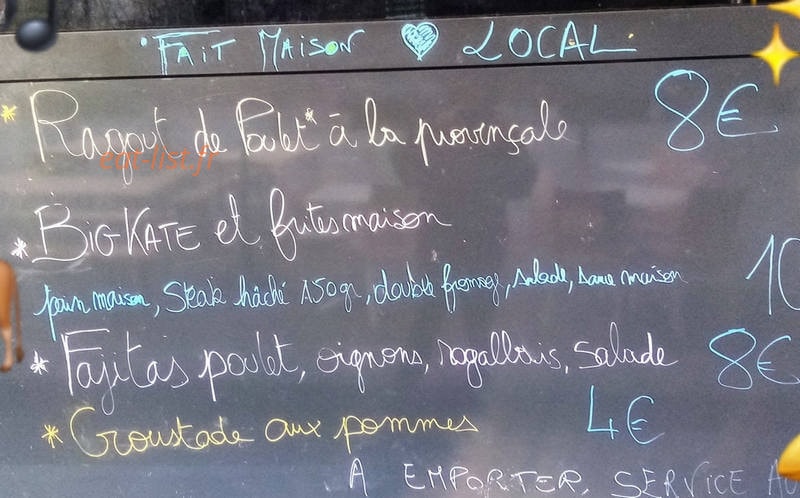 FAIT MAISON LOCAL
* Ragout de Poulet* à la provençale 8€
eat-list.fr
* BIGKATE et frites maison
pain maison, Steak hâché 150gr, double fromage, salade, sauce maison 10
* Fajitas poulet, oignons, rogallais, salade 8€
* Croustade aux pommes 4€
A EMPORTER, SERVICE AU